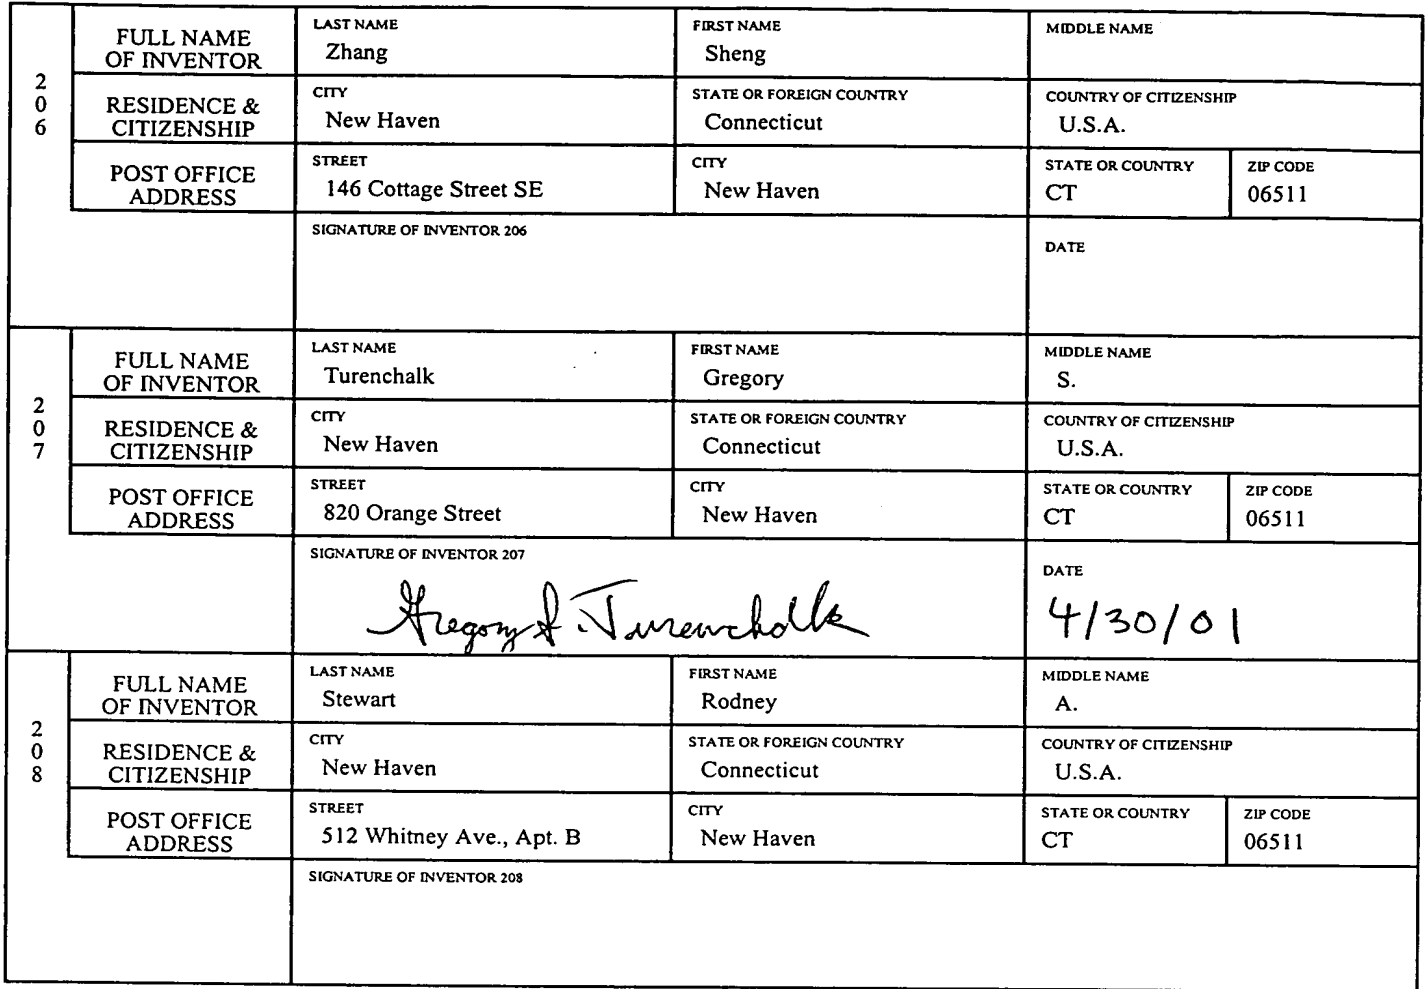 206
FULL NAME OF INVENTOR
LAST NAME
Zhang
FIRST NAME
Sheng
MIDDLE NAME
RESIDENCE & CITIZENSHIP
CITY
New Haven
STATE OR FOREIGN COUNTRY
Connecticut
COUNTRY OF CITIZENSHIP
U.S.A.
POST OFFICE ADDRESS
STREET
146 Cottage Street SE
CITY
New Haven
STATE OR COUNTRY
CT
ZIP CODE
06511
SIGNATURE OF INVENTOR 206
DATE
207
FULL NAME OF INVENTOR
LAST NAME
Turenchalk
FIRST NAME
Gregory
MIDDLE NAME
S.
RESIDENCE & CITIZENSHIP
CITY
New Haven
STATE OR FOREIGN COUNTRY
Connecticut
COUNTRY OF CITIZENSHIP
U.S.A.
POST OFFICE ADDRESS
STREET
820 Orange Street
CITY
New Haven
STATE OR COUNTRY
CT
ZIP CODE
06511
SIGNATURE OF INVENTOR 207
Gregory S. Turenchalk
DATE
4/30/01
208
FULL NAME OF INVENTOR
LAST NAME
Stewart
FIRST NAME
Rodney
MIDDLE NAME
A.
RESIDENCE & CITIZENSHIP
CITY
New Haven
STATE OR FOREIGN COUNTRY
Connecticut
COUNTRY OF CITIZENSHIP
U.S.A.
POST OFFICE ADDRESS
STREET
512 Whitney Ave., Apt. B
CITY
New Haven
STATE OR COUNTRY
CT
ZIP CODE
06511
SIGNATURE OF INVENTOR 208